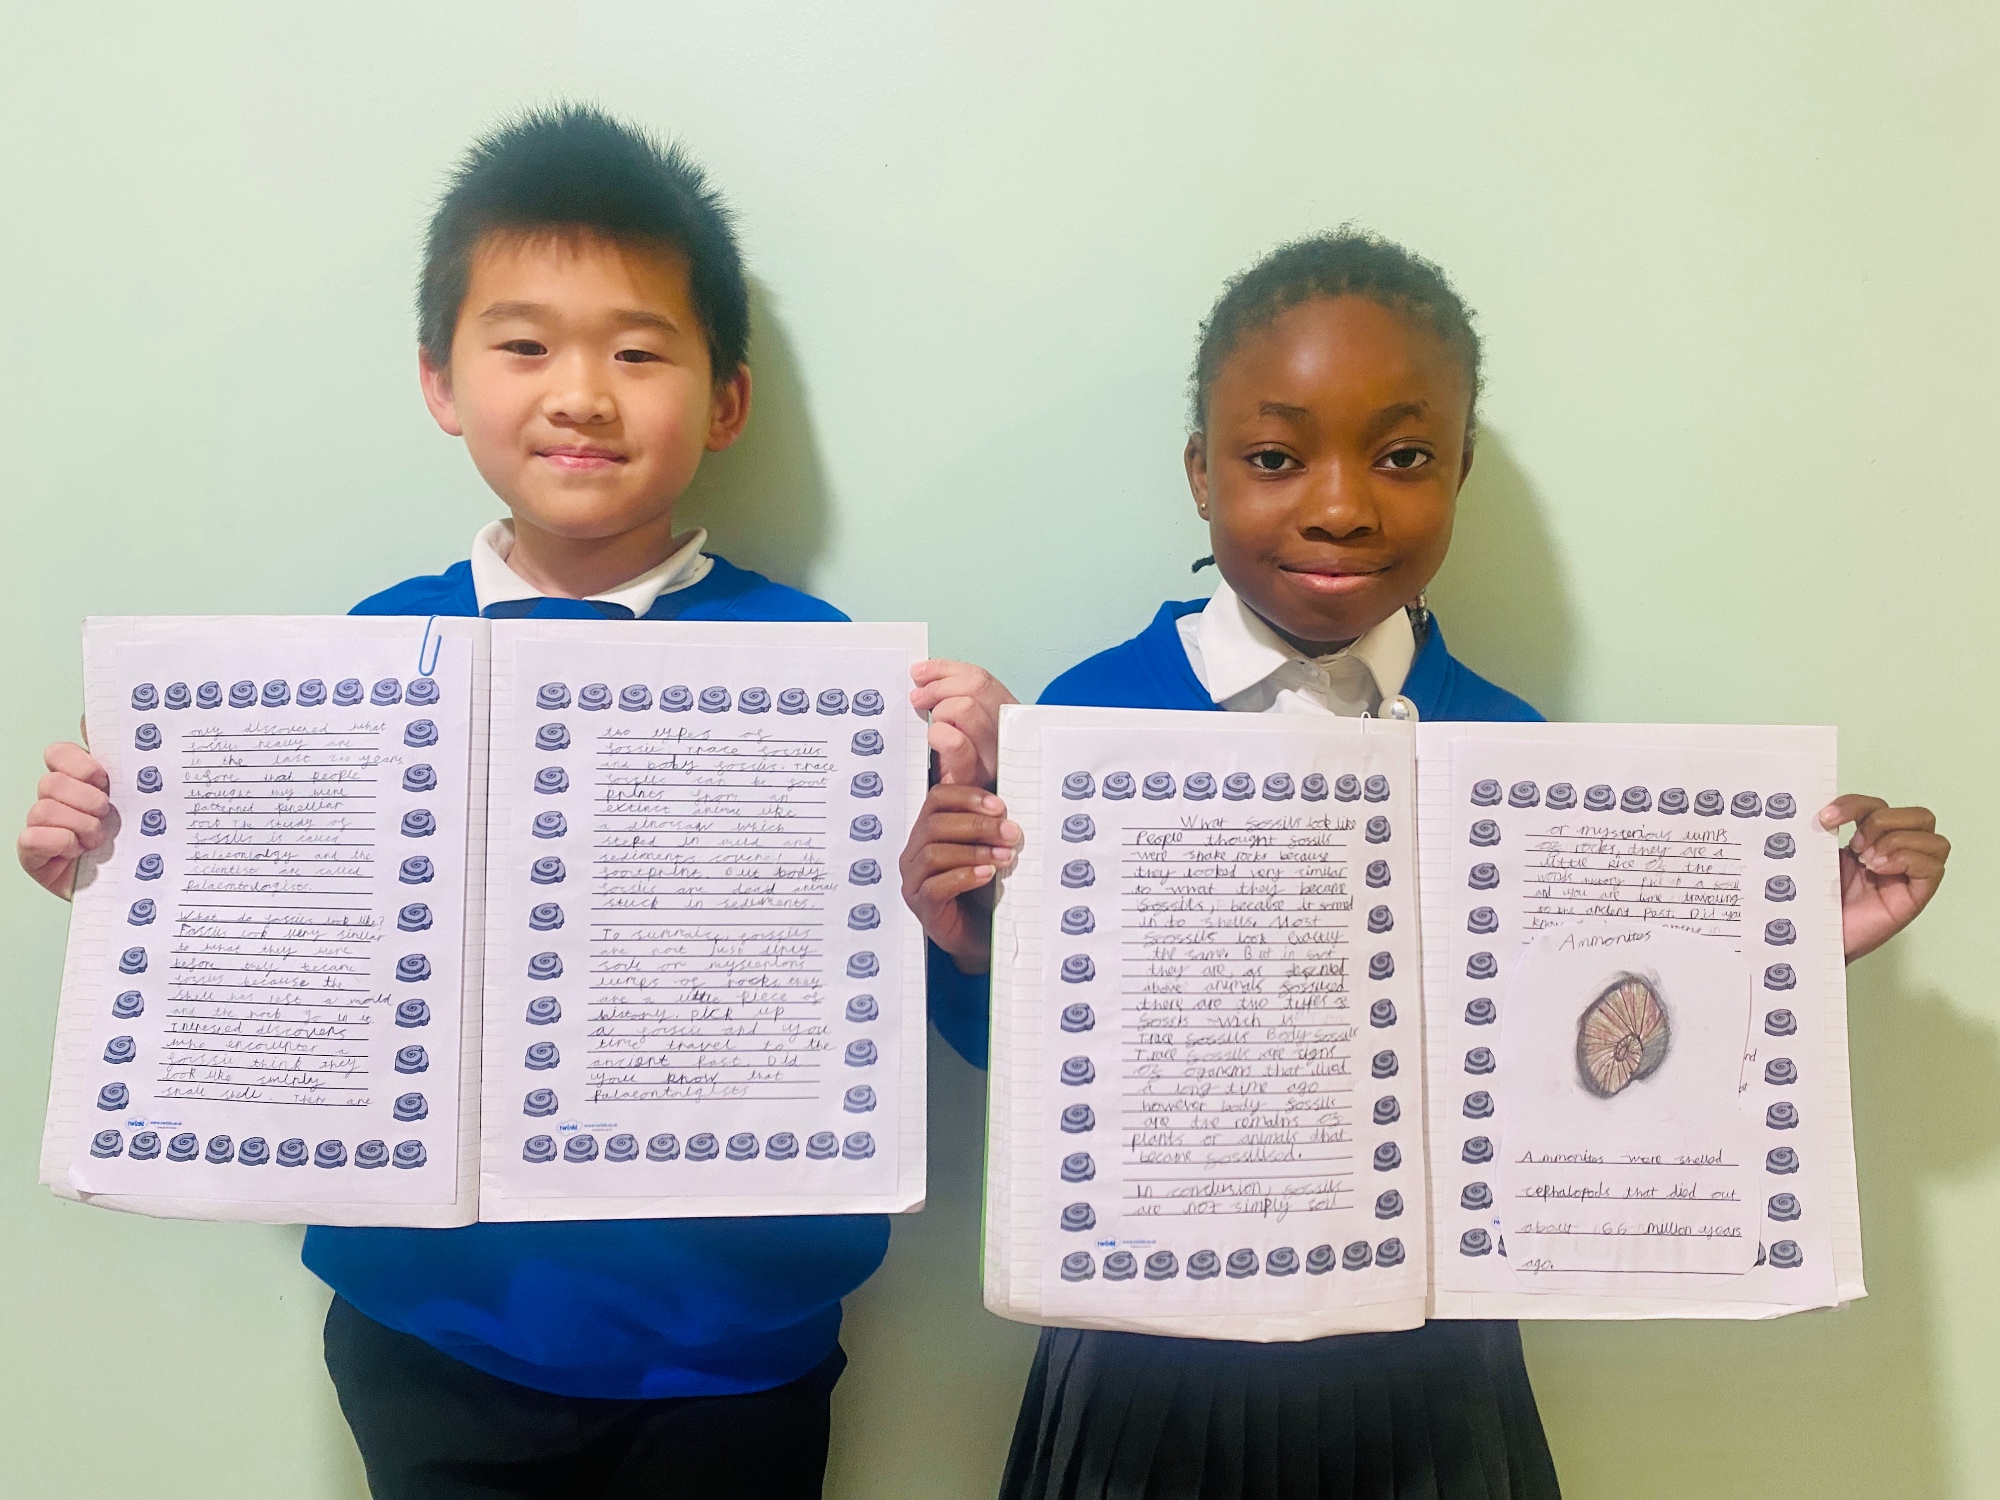 only discovered what
fossils really are
in the last 200 years
Before that people
thought they were
patterned
rock The study of
fossils is called
palaeontology and the
scientist are called
palaeontologists.
What do fossils look like?
Fossils look very similar
to what they were
before they became
fossils because the
shell has left a mould
and the rock go in it.
discovers
who encounter a
fossil think they
look like simply
small shell. There are
twinkl
two types of
fossil Trace fossils
and body fossils. Trace
fossils can be foot
prints from an
extinct animal like
a dinosaur which
steped in mud and
sediments covered the
footprint. But body
fossils are dead animals
stuck in sediments.
To summaise, fossils
are not just
soil or mysterious
lumps of rocks, they
are a little piece of
history. pick up
a fossil and you
time travel to the
ancient past. Did
you know that
twinkl
What fossils look like
People thought fossils
were snake rocks because
they looked very similar
to what they became
fossils, because it
in to shells. Most
fossils look exactly
the same. But in fact
they are, as
above animals fossilised
there are two types of
fossils is
Trace fossils Body fossils
Trace fossils are signs
of oganisms that
a long time ago
however body fossils
are the remains of
plants or animals that
became fossilised.
In conclusion, fossils
are not simply soil
twinkl
or mysterious lumps
of rocks, they are a
little of the
history Pick up a fossil
and you are time travouling
to the ancient past. Did you
know
Ammonites
Ammonites were shelled
cephalopods that died out
about 66 million years
ago.